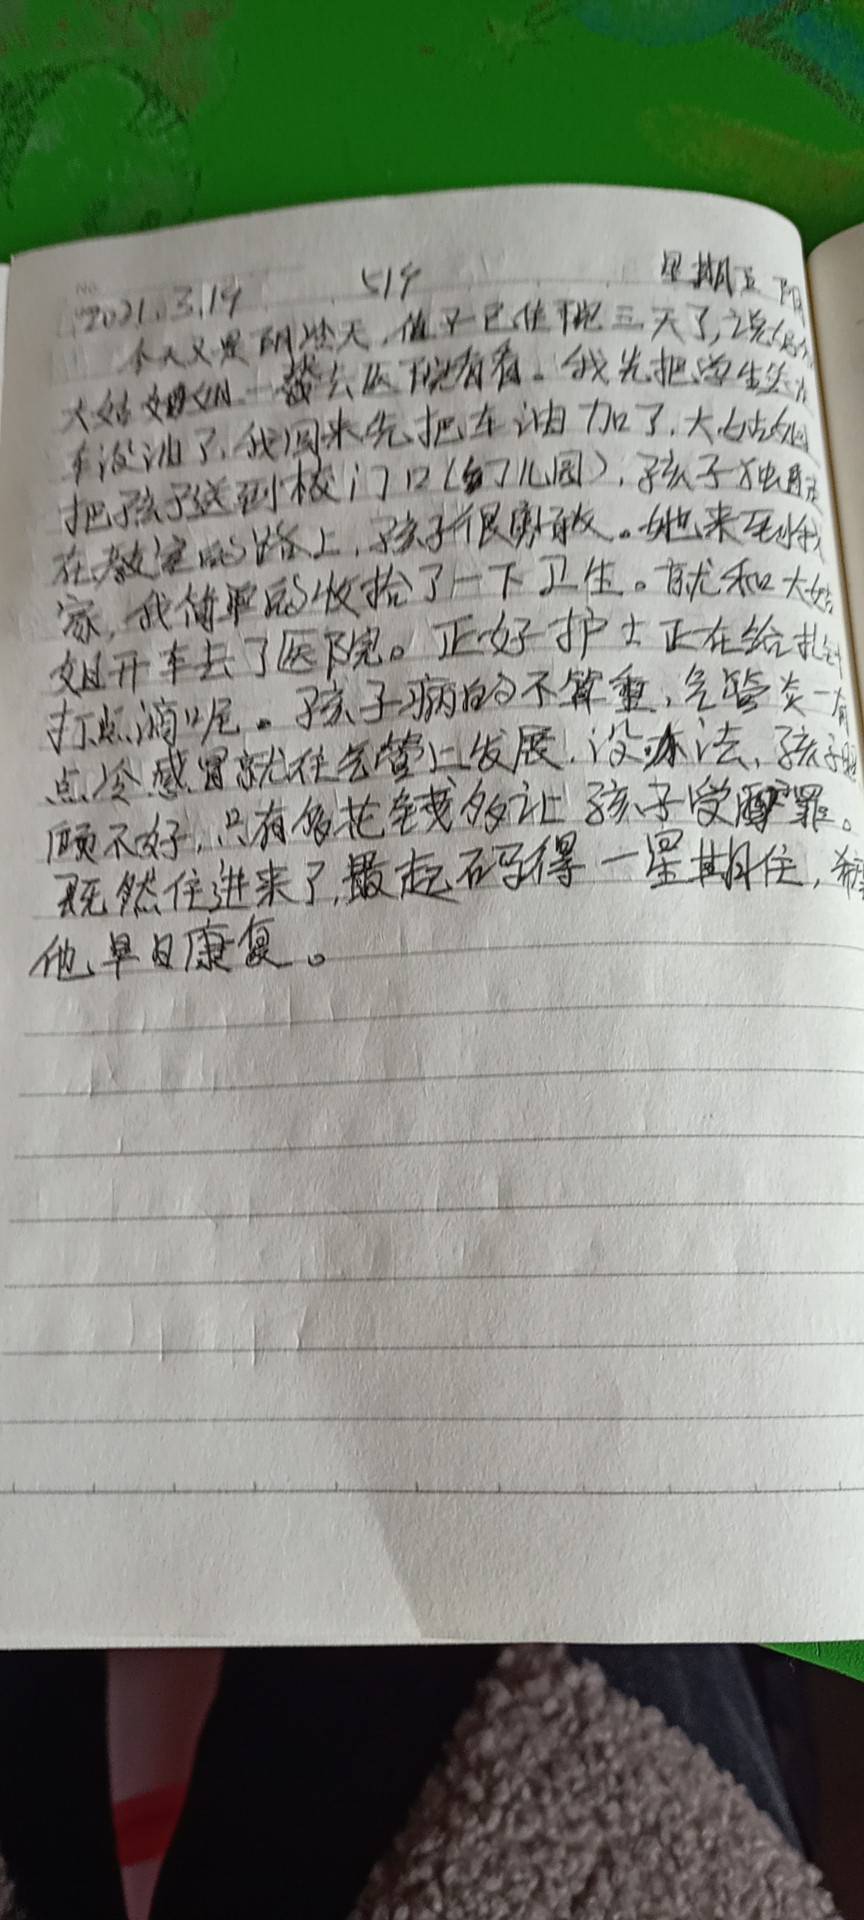 2021.3.19 519 星期五 阴
今天又是阴沙天,侄子已住院三天了,说好今
大姑姐一战去医院看看。我先把学生送
车没油了,我回来先把车油加了,大姑姐
把孩子送到校门口(幼儿园),孩子独自
在教室的路上,孩子很勇敢。她来到我
家,我简单的收拾了一下卫生。就和大姑
姐开车去了医院。正好护士正在给扎针
打点滴呢。孩子病的不算重,气管炎一有
点冷感冒就往气管上发展,没办法,孩子照
顾不好,只有多花钱多让孩子受罪。
既然住进来了,最起码得一星期住,希望
他早日康复。